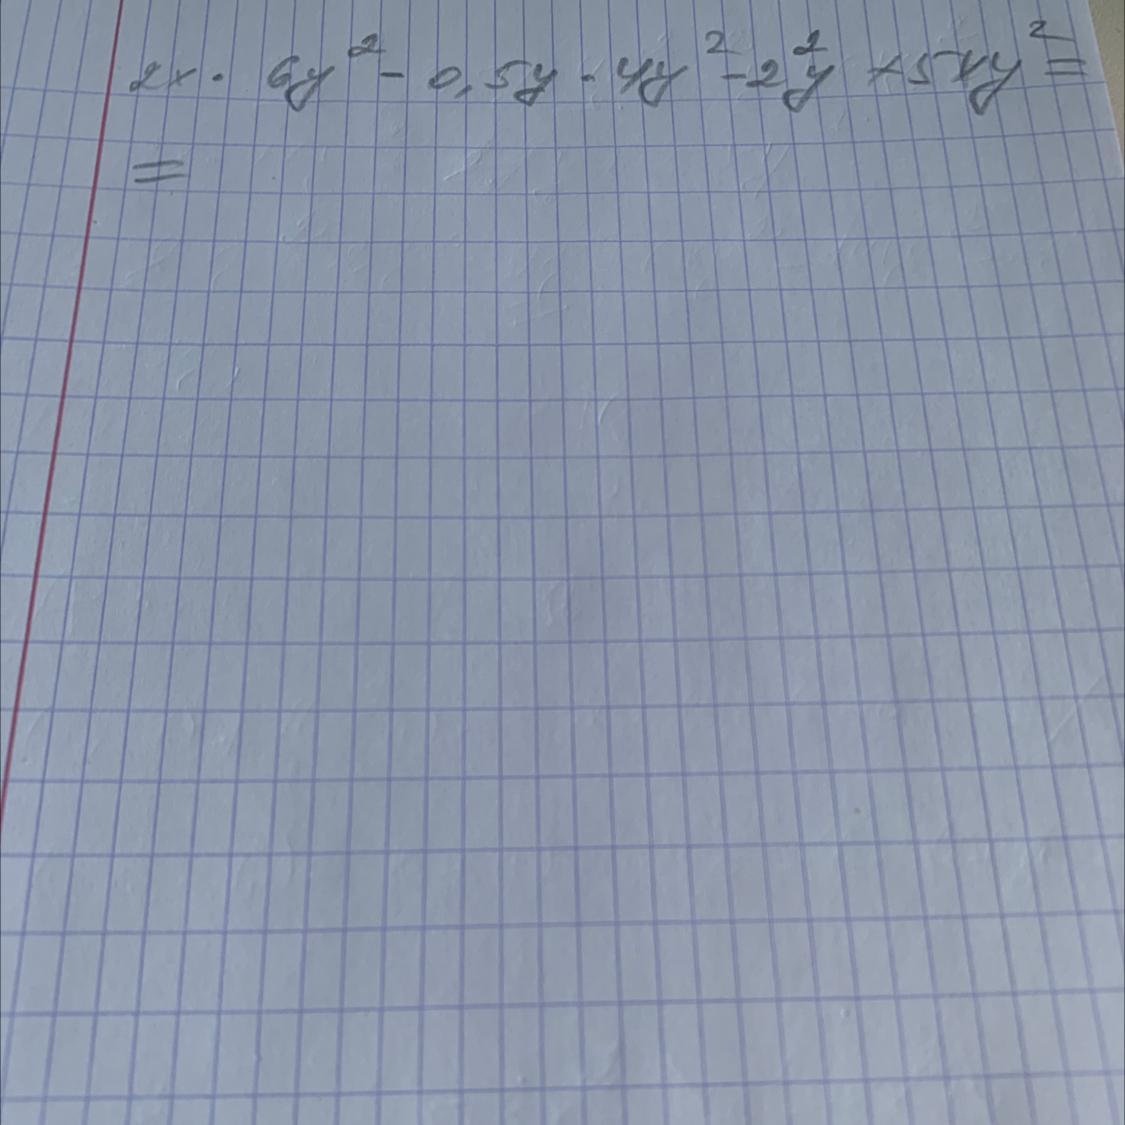 2x · 6y² - 0,5y · 4y² - 2y² × 5xy² =
=